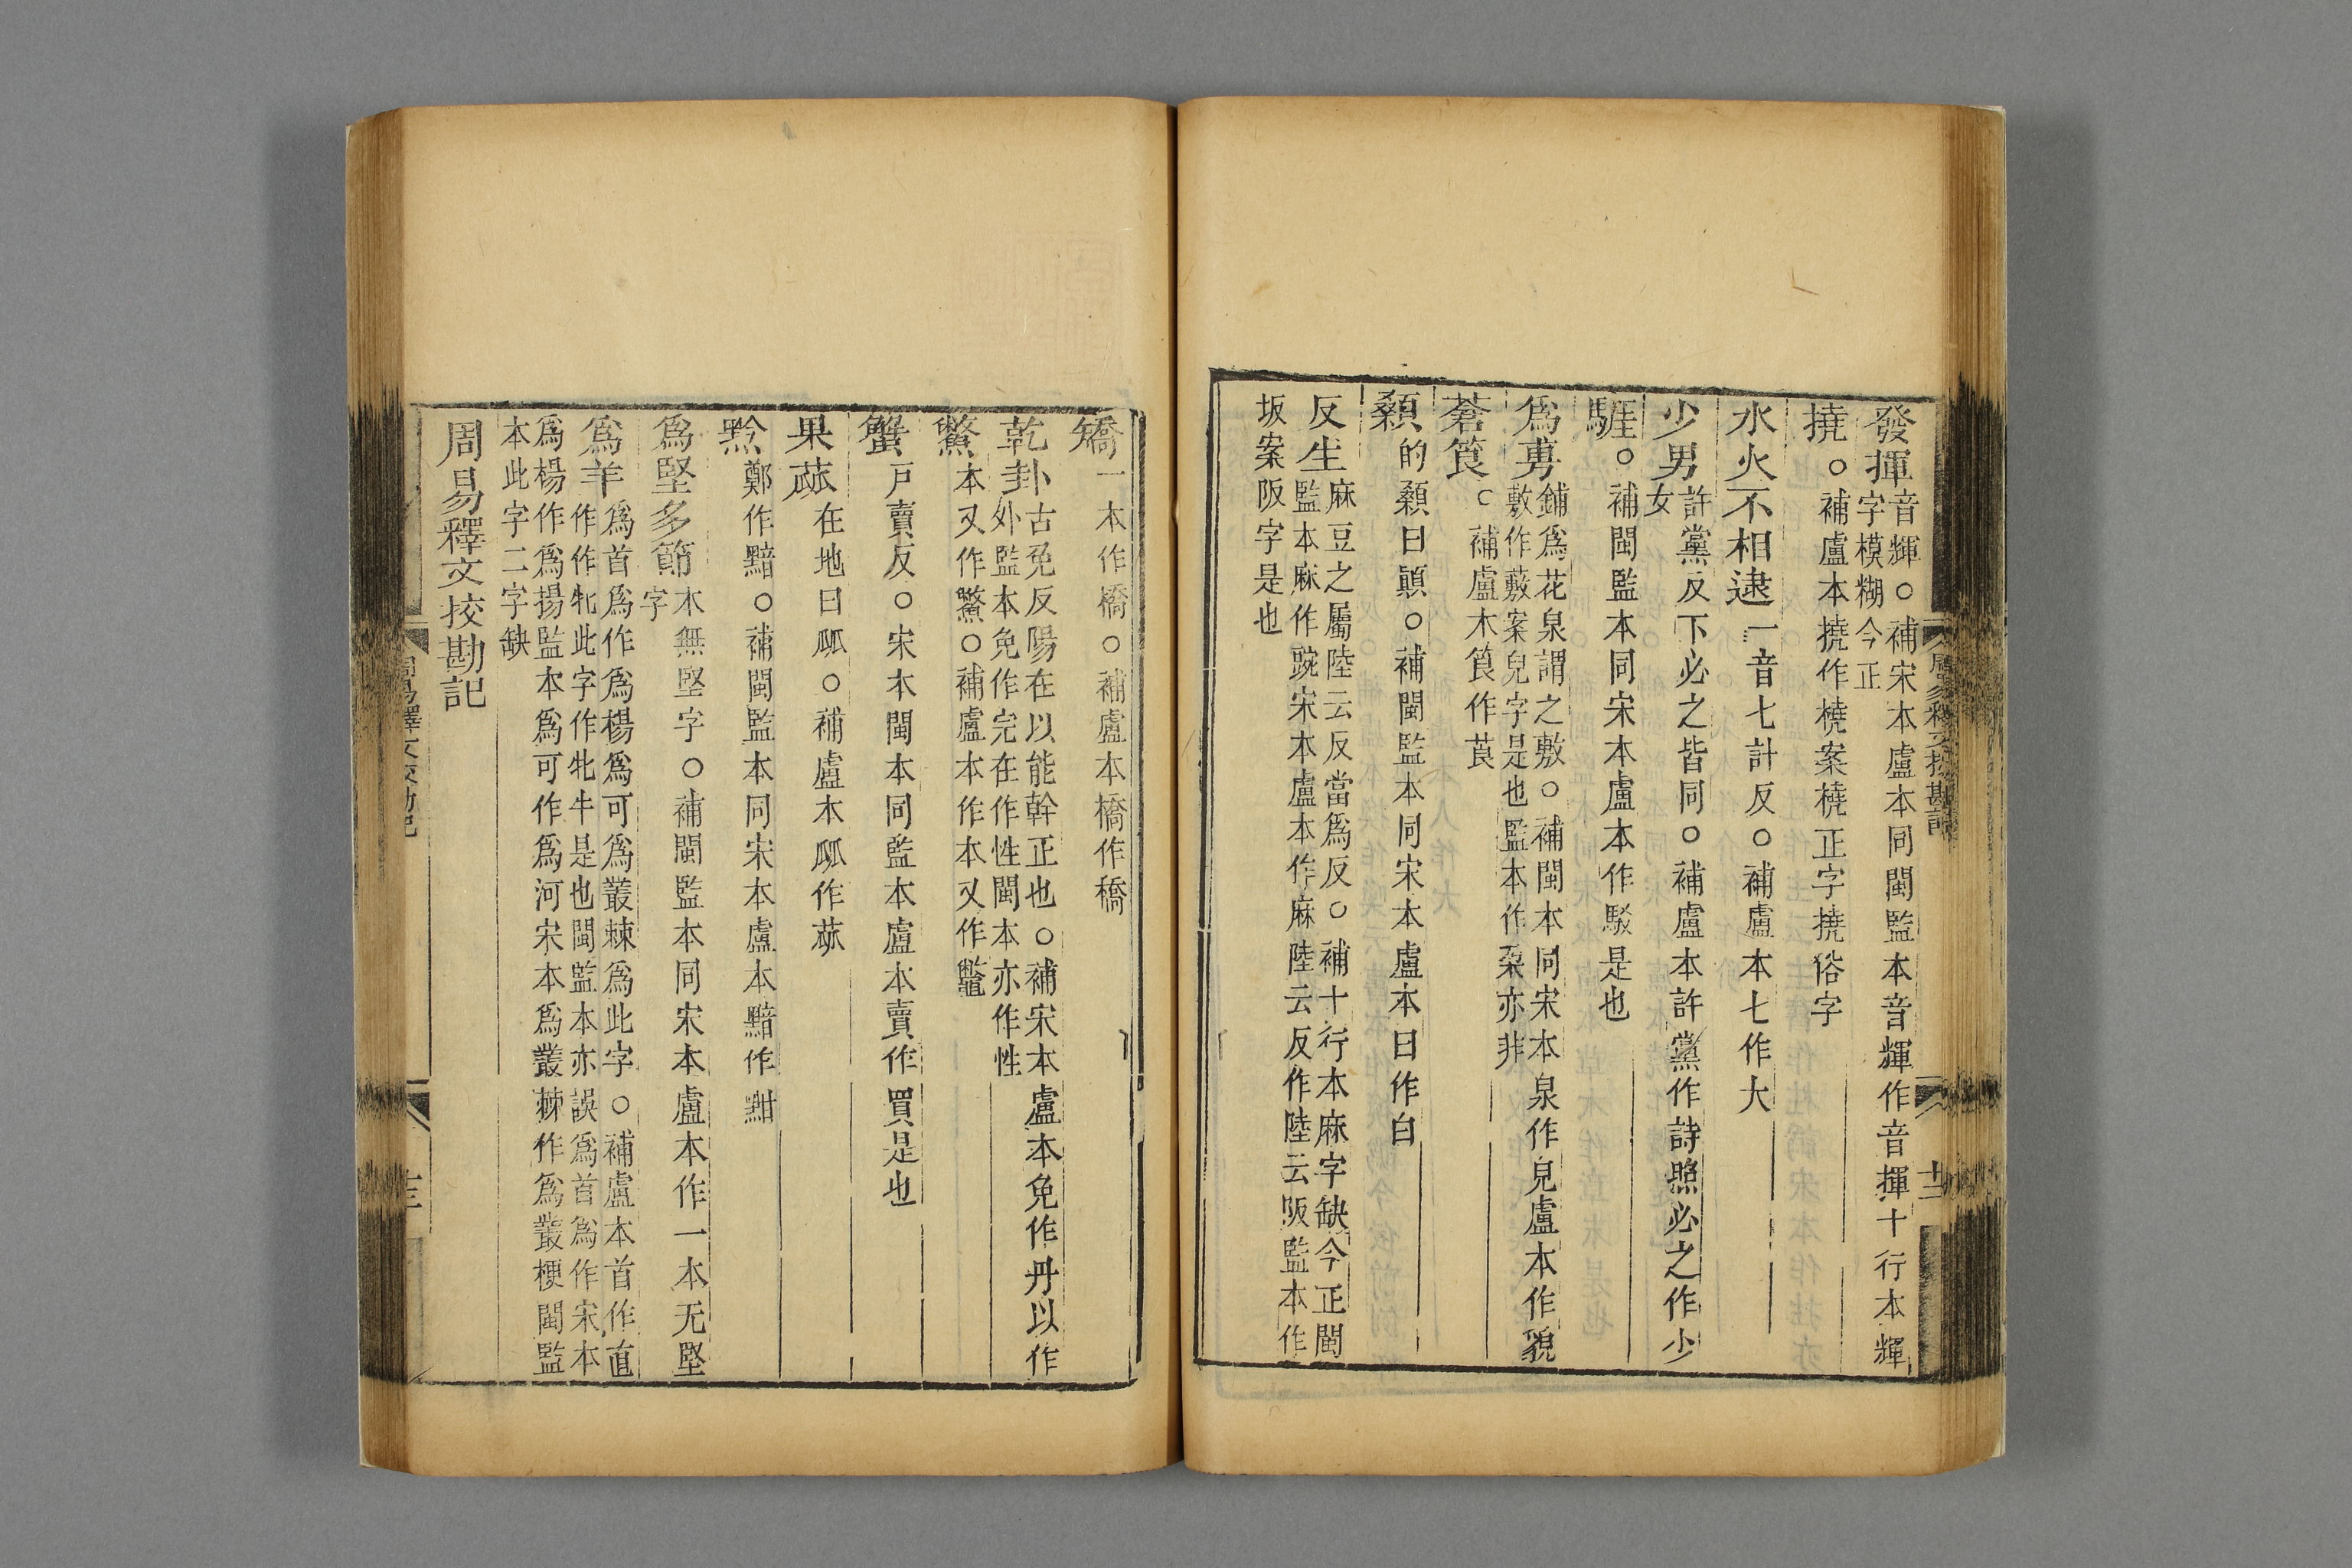 發揮音輝○補宋本盧本同閩監本音輝作音揮十行本輝
字模糊今正
撓○補盧本撓作橈案橈正字撓俗字
水火不相逮一音七計反○補盧本七作大
少男許黨反下必之皆同○補盧本許黨作詩照必之作少
女
駹○補閩監本同宋本盧本作駁是也
為旉鋪為花皃謂之敷○補閩本同宋本泉作皃盧本作貌
敷作藪案皃字是也監本作蕐亦非
蒼筤○補盧木筤作莨
顙的顙曰顚○補閩監本同宋本盧本曰作白
反生麻豆之屬陸云反當爲反○補十行本麻字缺今正閩
監本麻作豌宋本盧本作麻陸云反作陸云阪監本作
坂案阪字是也
矯一本作橋○補盧本橋作𥢧
乾卦古免反陽在以能幹正也○補宋本盧本免作丹以作
外監本免作完在作性閩本亦作性
鱉本又作鱉○補盧本作本又作鼈
蟹戸賣反○宋本閩本同監本盧本賣作買是也
果蓏在地曰㼌○補盧木㼌作蓏
黔鄭作黯○補閩監本同宋本盧本黯作黚
爲堅多節本無堅字○補閩監本同宋本盧本作一本无堅
字
爲羊爲首爲作爲楊爲可爲叢棘爲此字○補盧本首作直
作作牝此字作牝牛是也閩監本亦誤爲首爲作宋本
爲楊作爲揚監本爲可作爲河宋本爲叢棘作爲叢梗閩監
本此字二字缺
周易釋文挍勘記